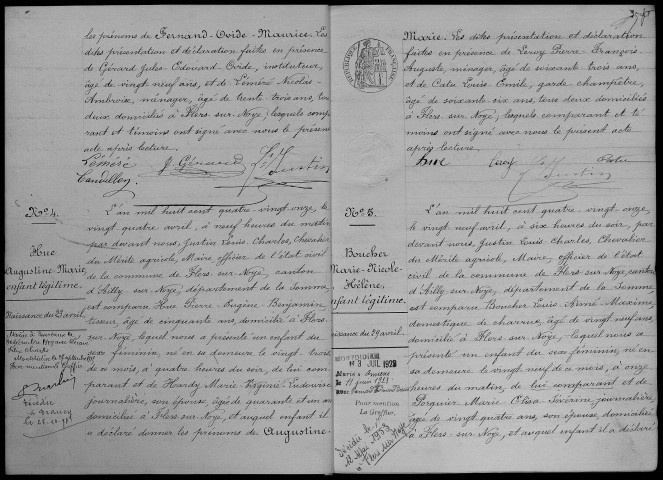 les prénoms de Fernand-Ovide-Maurice. Les
dites présentation et déclaration faites en présence
de Gérard Jules Edouard Ovide, instituteur,
âgé de vingt neuf ans, et de Lémeré Nicolas-
Ambroise, ménager, âgé de trente trois ans, tous
deux domiciliés à Flers-sur-Noye; lesquels comp-
arant et témoins ont signé avec nous le présent
acte après lecture.
Lémeré J. Gérard Justin
Candillon
No 4.
Hue
Augustine-Marie
enfant légitime.
Naissance du 23 avril.
L'an mil huit cent quatre-vingt onze, le
vingt quatre avril, à neuf heures du matin
par devant nous, Justin Louis-Charles, Chevalier
du Mérite agricole, Maire, officier de l'état civil
de la commune de Flers-sur-Noye, canton
d'Ailly-sur-Noye, département de la Somme,
est comparu Hue Pierre-Eugène-Benjamin
tisseur, âgé de cinquante ans, domicilié à Flers-
sur-Noye, lequel nous a présenté un enfant du
sexe féminin, né en sa demeure le vingt trois
de ce mois, à quatre heures du soir, de lui comp-
arant et de Hardy Marie-Virginie-Ludovine
journalière, son épouse, âgée de quarante et un ans
domiciliée à Flers-sur-Noye, et auquel enfant il
a déclaré donner les prénoms de Augustine-
Marie. Les dites présentation et déclaration
faites en présence de Leroy Pierre-François-
Auguste, ménager, âgé de soixante trois ans,
et de Catu Louis-Emile, garde champêtre,
âgé de soixante six ans, tous deux domiciliés
à Flers-sur-Noye; lesquels comparant et té-
moins ont signé avec nous le présent acte
après lecture.
hue Leroy Justin Catu
RÉPUBLIQUE FRANÇAISE
No 5.
Boucher
Marie-Nicole-
Hélène,
enfant légitime.
Naissance du 29 avril.
3 JUIL 1929
Pour mention
Le Greffier,
Décédée le
L'an mil huit cent quatre-vingt-onze,
le vingt neuf avril, à six heures du soir, par
devant nous Justin Louis-Charles, Chevalier
du Mérite agricole, Maire, officier de l'état
civil de la commune de Flers-sur-Noye, canton
d'Ailly-sur-Noye, département de la Somme,
est comparu Boucher Louis-Aimé-Maxime,
domestique de charrue, âgé de vingt neuf ans,
domicilié à Flers-sur-Noye, lequel nous a
présenté un enfant du sexe féminin, né en
sa demeure le vingt neuf de ce mois, à onze
heures du matin, de lui comparant et de
Marie-Elisa-Sévérine, journalière,
âgée de vingt quatre ans, son épouse, domiciliée
à Flers-sur-Noye, et auquel enfant il a déclaré